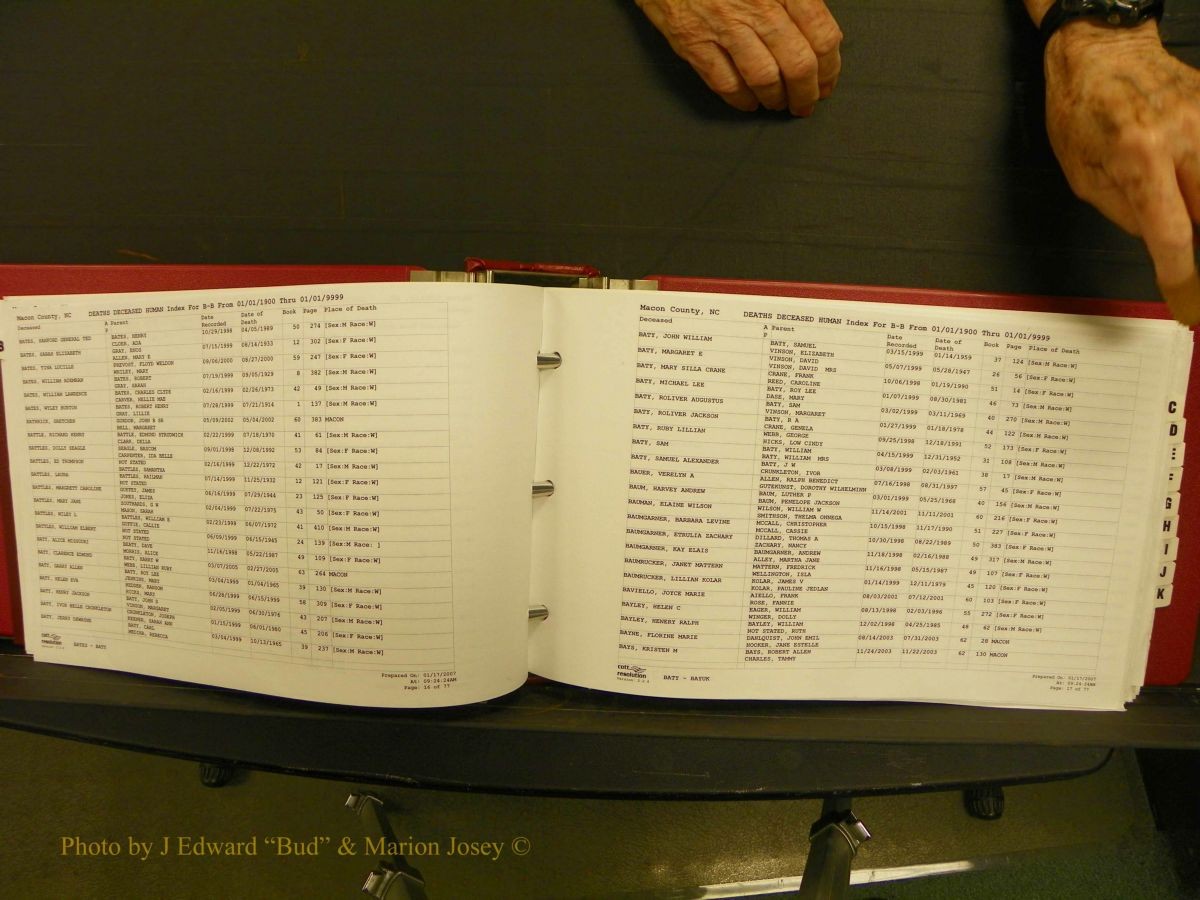 Macon County, NC DEATHS DECEASED HUMAN Index For B-B From 01/01/1900 Thru 01/01/9999
Deceased A Parent Date Recorded Date of Death Book Page Place of Death
P
BATES, SANFORD GENERAL TED BATES, HENRY 10/29/1998 04/05/1989 50 274 [Sex:M Race:W]
CLOER, ADA
BATES, SARAH ELIZABETH GRAY, ENOS 07/15/1999 08/14/1933 12 302 [Sex:F Race:W]
ALLEN, MARY E
BATES, TINA LUCILLE PREVOST, FLOYD WELDON 09/06/2000 08/27/2000 59 247 [Sex:F Race:W]
BATES, WILLIAM BATES, ROBERT 07/19/1999 09/05/1929 8 382 [Sex:M Race:W]
GRAY, SARAH
BATES, WILLIAM LAWRENCE BATES, CHARLES CLYDE 02/16/1999 02/26/1973 42 49 [Sex:M Race:W]
CARVER, NELLIE MAE
BATES, WILEY BURTON BATES, ROBERT HENRY 07/28/1999 07/21/1914 1 137 [Sex:M Race:W]
GRAY, LILLIE
BATHRICK, GRETCHEN GORDON, JOHN B SR 05/09/2002 05/04/2002 60 383 MACON
BELL, MARGARET
BATTLE, RICHARD HENRY BATTLE, EDMUND STRUDWICK 02/22/1999 07/18/1970 41 61 [Sex:M Race:W]
CLARK, DELLA
BATTLES, DOLLY BEAGLE BEAGLE, BASCOM 09/01/1998 12/08/1992 53 84 [Sex:F Race:W]
CARPENTER, IDA BELLE
BATTLES, ED THOMPSON NOT STATED 02/16/1999 12/22/1972 42 17 [Sex:M Race:W]
BATTLES, SAMANTHA
BATTLES, LAURA 07/14/1999 11/25/1932 12 121 [Sex:F Race:W]
NOT STATED
BATTLES, MARGRETT CAROLINE GUFFEY, JAMES 06/16/1999 07/29/1944 23 125 [Sex:F Race:W]
JONES, ELIZA
BATTLES, MARY JANE 02/04/1999 07/22/1975 43 50 [Sex:F Race:W]
MASON, SARAH
BATTLES, WILEY L BATTLES, WILLIAM E 02/23/1999 06/07/1972 41 410 [Sex:M Race:W]
GUFFIE, CALLIE
BATTLES, WILLIAM ELBERT NOT STATED 06/09/1999 06/15/1945 24 139 [Sex:M Race: ]
NOT STATED
BATY, ALICE MISSOURI BEATY, DAVE 11/16/1998 05/22/1987 49 109 [Sex:F Race:W]
MORRIS, ALICE
BATY, BARRY ALLEN BATY, HARRY W 03/07/2005 02/27/2005 63 264 MACON
WEBB, LILLIAN RUBY
BATY, CLARENCE EDMUND BATY, ROY LEE 03/04/1999 01/04/1965 39 130 [Sex:M Race:W]
JENKINS, MARY
BATY, HELEN EVA HEDDEN, RANSOM 06/28/1999 06/15/1999 58 309 [Sex:F Race:W]
HICKS, MARY
BATY, HENRY JACKSON BATY, JOHN S 02/05/1999 06/30/1974 43 207 [Sex:M Race:W]
VINSON, MARGARET
BATY, IVOR NELLE CRUNKLETON CRUNKLETON, JOSEPH 01/15/1999 06/01/1980 45 206 [Sex:F Race:W]
KEENER, SARAH ANN
BATY, JERRY DEWAYNE BATY, CARL 03/04/1999 10/13/1965 39 237 [Sex:M Race:W]
MEDLIN, REBECCA
cott
resolution
BATES - BATY
Prepared On: 01/17/2007
At: 09:24:24AM
Page: 16 of 77
Macon County, NC DEATHS DECEASED HUMAN Index For B-B From 01/01/1900 Thru 01/01/9999
Deceased A Parent Date Recorded Date of Death Book Page Place of Death
BATY, JOHN WILLIAM BATY, SAMUEL 03/15/1999 01/14/1959 37 124 [Sex:M Race:W]
VINSON, ELIZABETH
BATY, MARGARET E VINSON, DAVID 05/07/1999 05/28/1947 26 56 [Sex:F Race:W]
VINSON, DAVID MRS
BATY, MARY SILLA CRANE CRANE, FRANK 10/06/1998 01/19/1990 51 14 [Sex:F Race:W]
REED, CAROLINE
BATY, MICHAEL LEE BATY, ROY LEE 01/07/1999 08/30/1981 46 73 [Sex:M Race:W]
DASE, MARY
BATY, ROLIVER AUGUSTUS BATY, SAM 03/02/1999 03/11/1969 40 270 [Sex:M Race:W]
VINSON, MARGARET
BATY, ROLIVER JACKSON BATY, R A 01/27/1999 01/18/1978 44 122 [Sex:M Race:W]
CRANE, GENELA
BATY, RUBY LILLIAN WEBB, GEORGE 09/25/1998 12/18/1991 52 173 [Sex:F Race:W]
HICKS, LOW CINDY
BATY, SAM BATY, WILLIAM 04/15/1999 12/31/1952 31 108 [Sex:M Race:W]
BATY, WILLIAM MRS
BATY, SAMUEL ALEXANDER BATY, J W 03/08/1999 02/03/1961 38 17 [Sex:M Race:W]
CRUNKLETON, IVOR
BAUER, VERELYN A ALLEN, RALPH BENEDICT 07/16/1998 08/31/1997 57 45 [Sex:F Race:W]
GUTEKUNST, DOROTHY WILHELMINH
BAUM, HARVEY ANDREW BAUM, LUTHER P 03/01/1999 05/25/1968 40 156 [Sex:M Race:W]
BAUM, PENELOPE JACKSON
BAUMAN, ELAINE WILSON WILSON, WILLIAM W 11/14/2001 11/11/2001 60 216 [Sex:F Race:W]
SMITHSON, THELMA OHNEGA
BAUMGARNER, BARBARA LEVINE MCCALL, CHRISTOPHER 10/15/1998 11/17/1990 51 227 [Sex:F Race:W]
MCCALL, CASSIE
BAUMGARNER, ETRULIA ZACHARY DILLARD, THOMAS A 10/30/1998 08/22/1989 50 383 [Sex:F Race:W]
ZACHARY, NANCY
BAUMGARNER, KAY ELAIS BAUMGARNER, ANDREW 11/18/1998 02/16/1988 49 317 [Sex:M Race:W]
ALLEY, MARTHA JANE
BAUMRUCKER, JANET MATTERN MATTERN, FREDRICK 11/16/1998 05/15/1987 49 107 [Sex:F Race:W]
WELLINGTON, ISLA
BAUMRUCKER, LILLIAN KOLAR KOLAR, JAMES V 01/14/1999 12/11/1979 45 120 [Sex:F Race:W]
KOLAR, PAULINE JEDLAN
BAVIELLO, JOYCE MARIE AIELLO, FRANK 08/03/2001 07/12/2001 60 103 [Sex:F Race:W]
ROSE, FANNIE
BAYLEY, HELEN C EAGER, WILLIAM 08/13/1998 02/03/1996 55 272 [Sex:F Race:W]
WINGER, DOLLY
BAYLEY, HENERY RALPH BAYLEY, WILLIAM 12/02/1998 04/25/1985 48 62 [Sex:M Race:W]
NOT STATED, RUTH
BAYNE, FLORINE MARIE DAHLQUIST, JOHN EMIL 08/14/2003 07/31/2003 62 28 MACON
HOOKER, JANE ESTELLE
BAYS, KRISTEN M BAYS, ROBERT ALLEN 11/24/2003 11/22/2003 62 130 MACON
CHARLES, TAMMY
cott
resolution
BATY - BAYUK
Prepared On: 01/17/2007
At: 09:24:24AM
Page: 17 of 77
C
D
E
F
G
H
I
J
K
Photo by J Edward “Bud” & Marion Josey ©